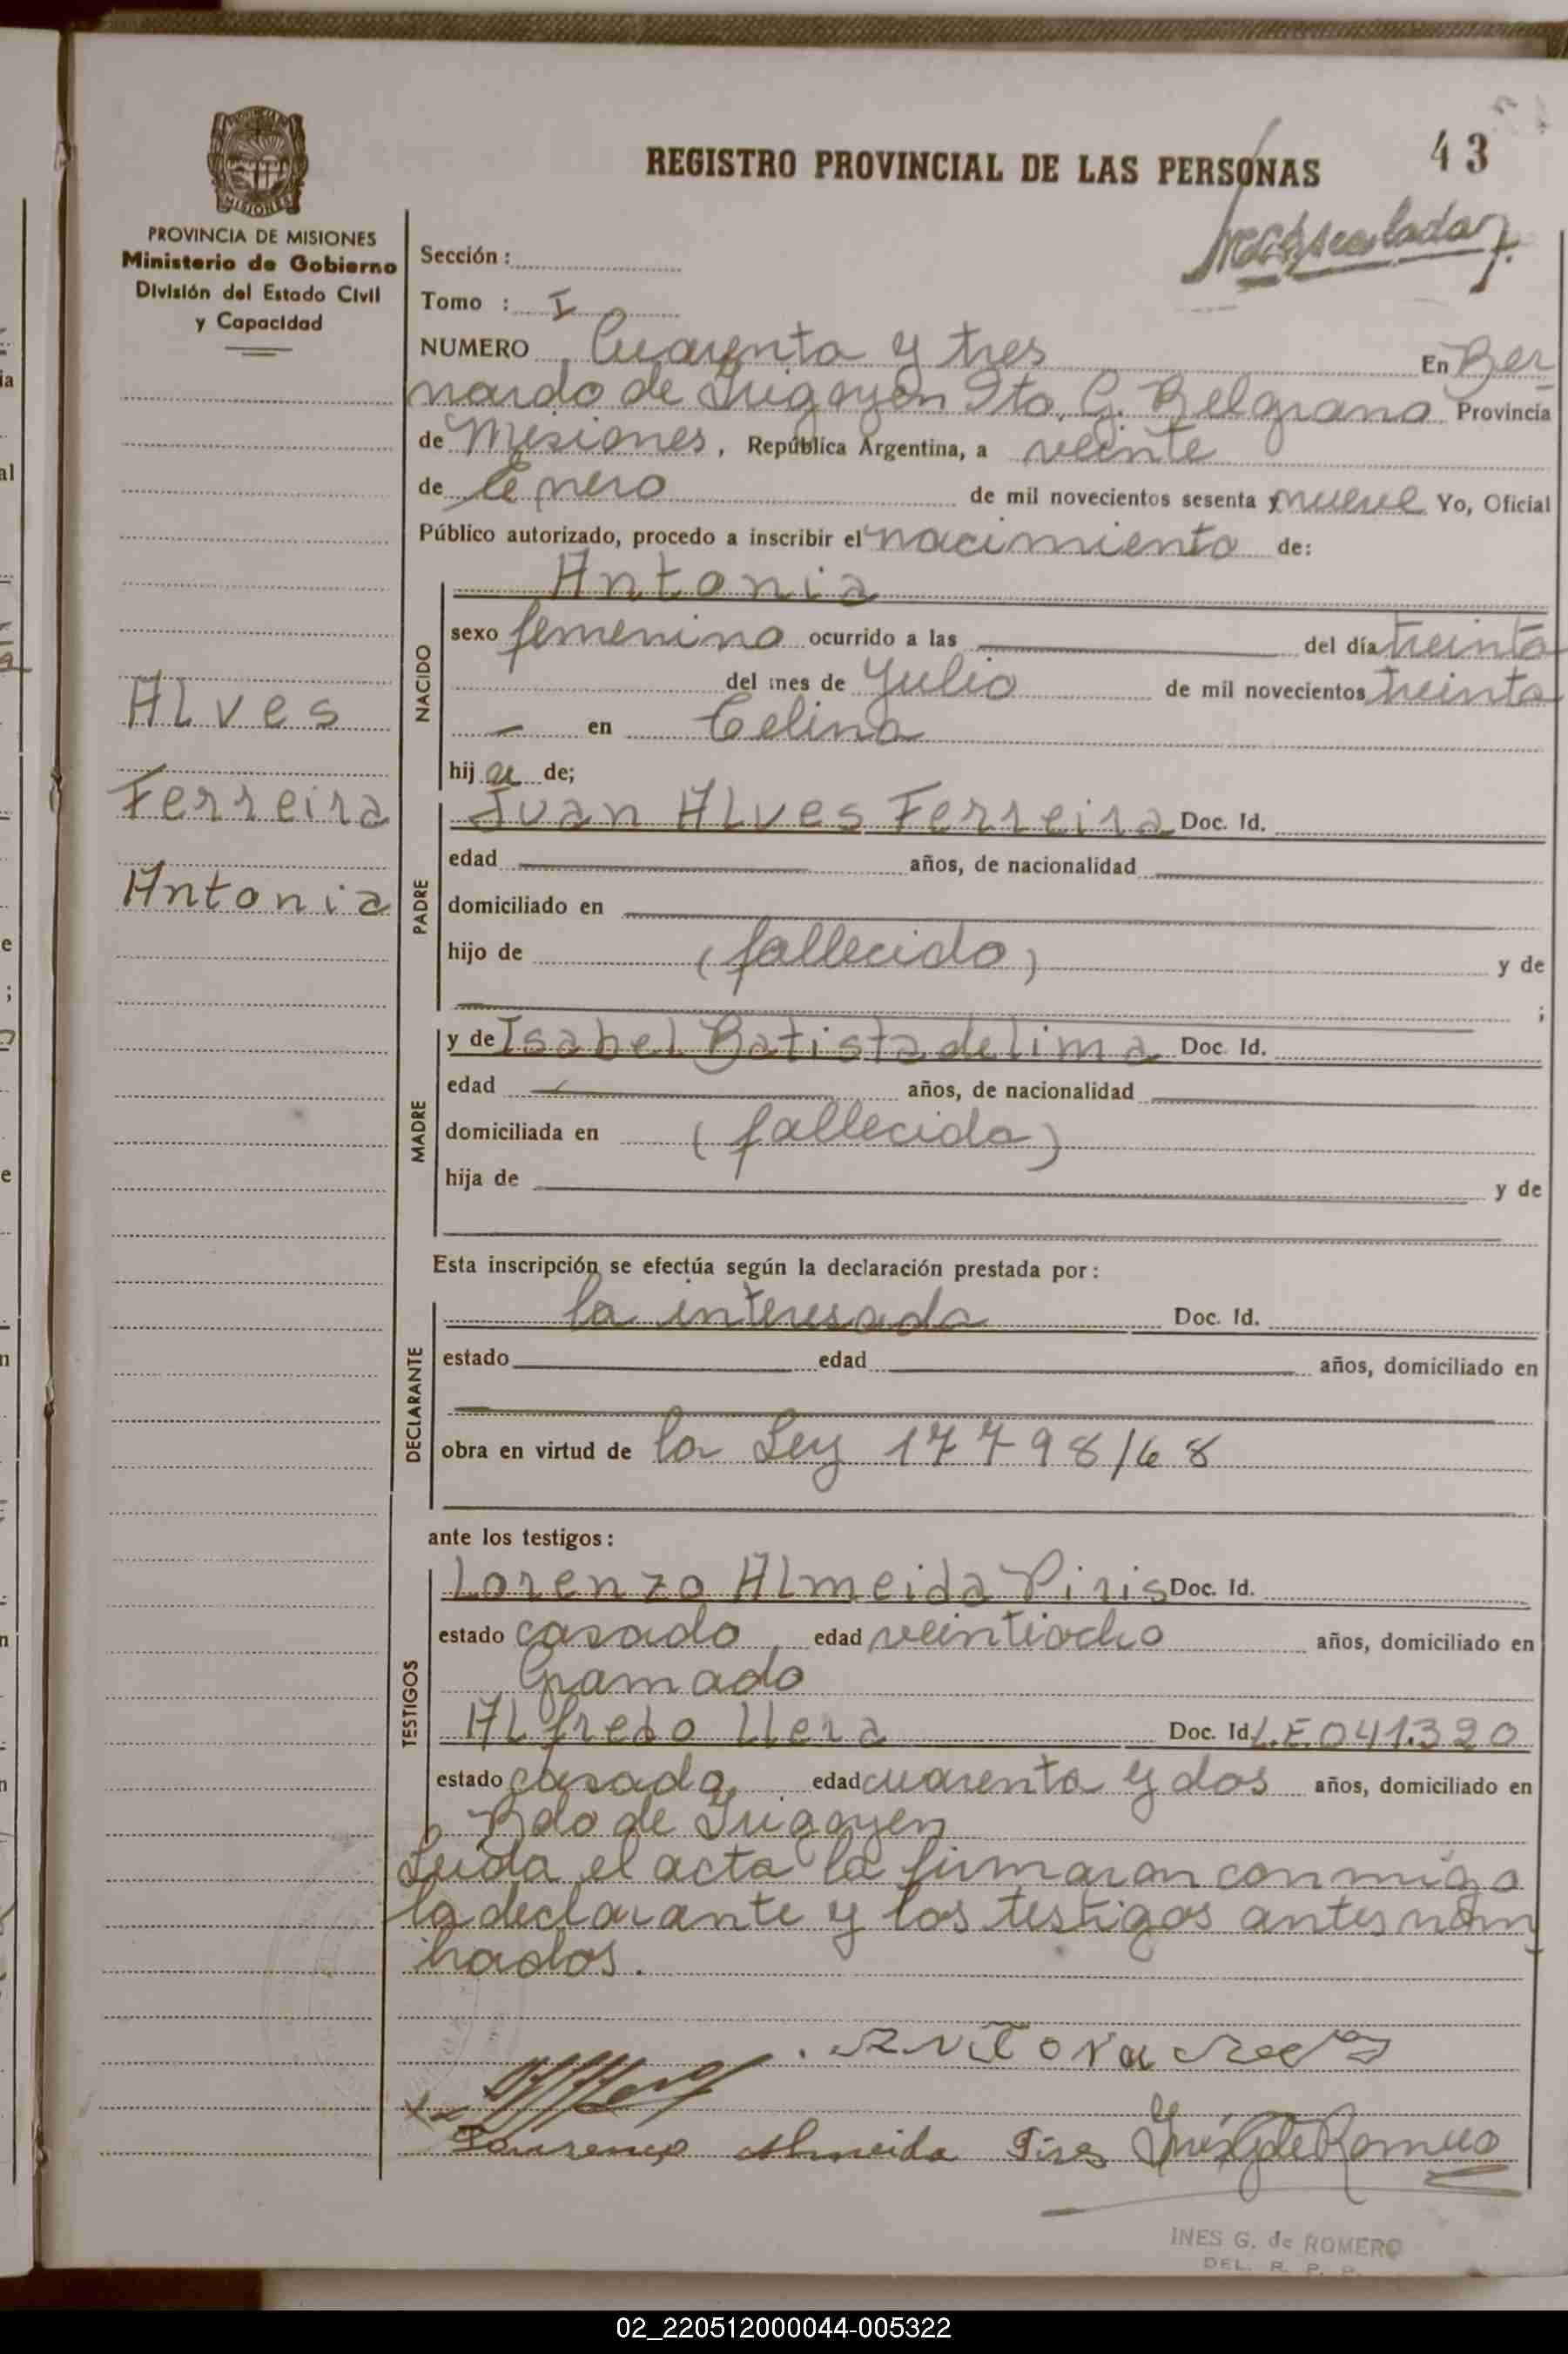 REGISTRO PROVINCIAL DE LAS PERSONAS
43
MISIONES
PROVINCIA DE MISIONES
Ministerio de Gobierno
División del Estado Civil
y Capacidad
Sección :
Tomo : I
NUMERO Cuarenta y tres En Ber
nardo de Irigoyen Dto. G. Belgrano Provincia
de Misiones, República Argentina, a veinte
de Enero de mil novecientos sesenta y nueve Yo, Oficial
Público autorizado, procedo a inscribir el nacimiento de:
NACIDO
Antonia
sexo femenino ocurrido a las del día treinta
del mes de Julio de mil novecientos treinta
— en Celina
hija de;
ALves
Ferreira
Antonia
PADRE
Juan ALves Ferreira Doc. Id.
edad años, de nacionalidad
domiciliado en
hijo de (fallecido) y de
;
MADRE
y de Isabel Batista de lima Doc. Id.
edad años, de nacionalidad
domiciliada en (fallecida)
hija de y de
Esta inscripción se efectúa según la declaración prestada por :
DECLARANTE
la interesada Doc. Id.
estado edad años, domiciliado en
obra en virtud de la Ley 17798/68
ante los testigos :
TESTIGOS
Lorenzo ALmeida Piris Doc. Id.
estado casado edad veintiocho años, domiciliado en
Gramado
ALfredo LLera Doc. Id L.E 041.320
estado casado, edad cuarenta y dos años, domiciliado en
Bdo de Irigoyen
Leida el acta la firmaron conmigo
la declarante y los testigos antes nom
brados.
Lourenço Almeida Pires Inés G de Romero
INES G. de ROMERO
DEL. R. P. P.
02_220512000044-005322